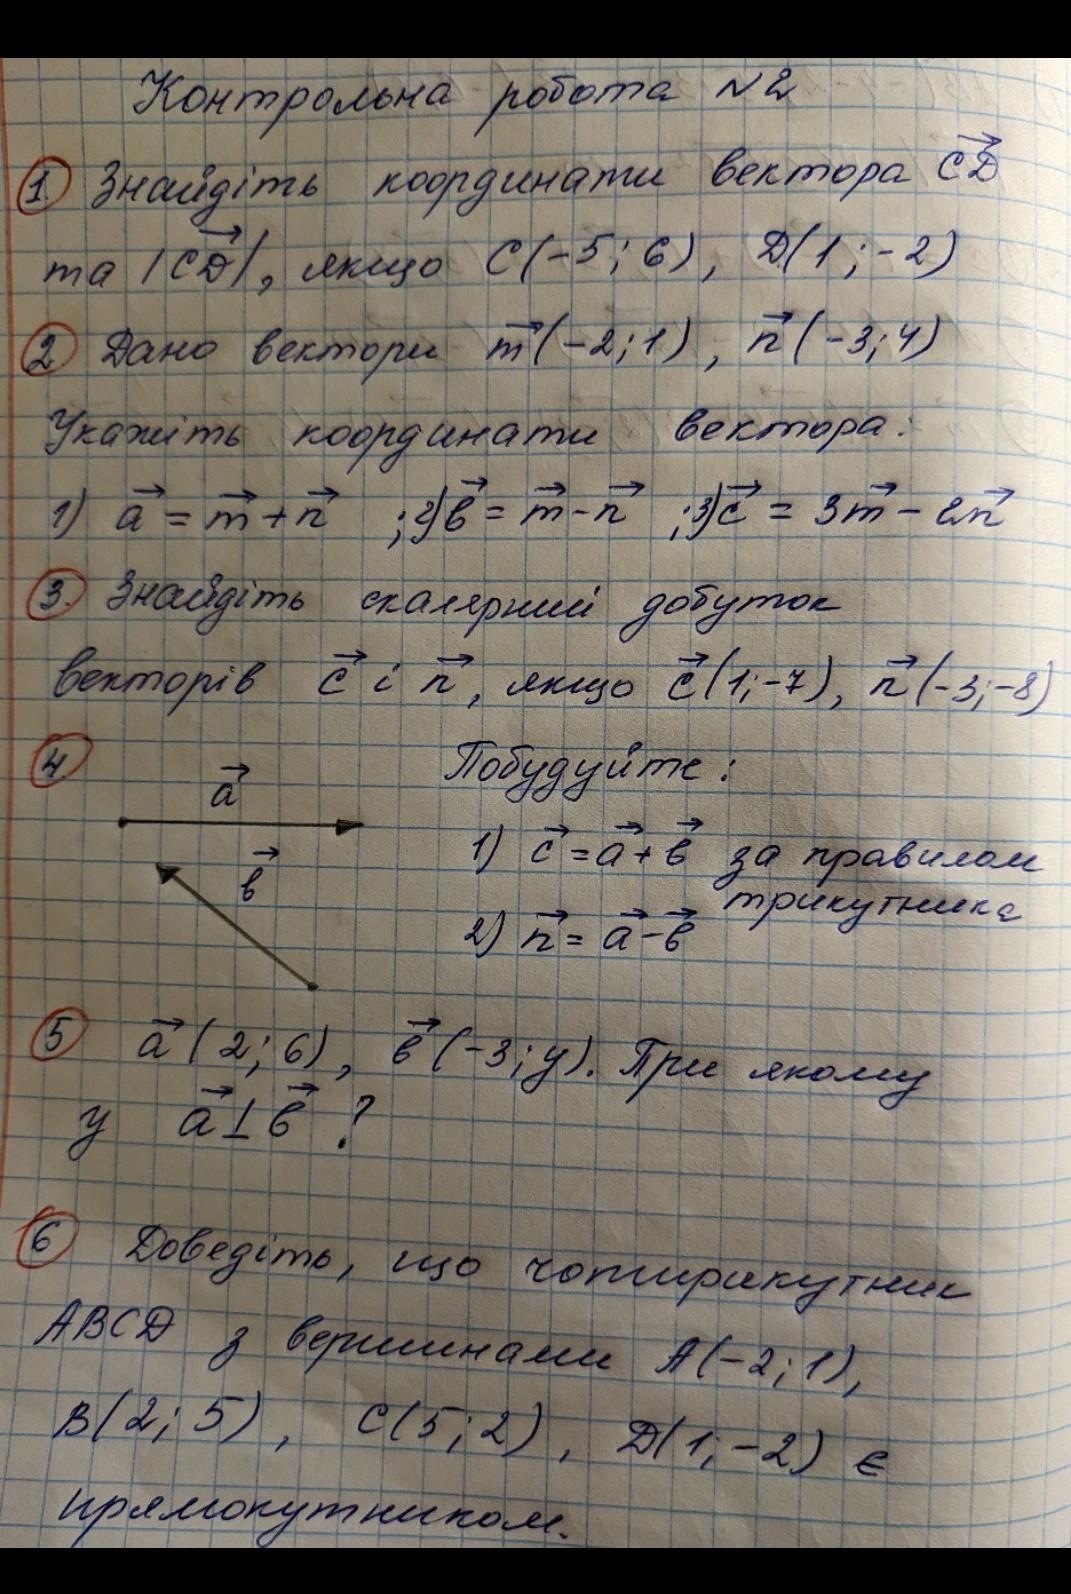 Контрольна робота №2
1. Знайдіть координати вектора C͞D⃗
та |CD⃗|, якщо C(-5; 6), D(1; -2)
2 Дано вектори m⃗(-2; 1), n⃗(-3; 4)
Укажіть координати вектора:
1) a⃗ = m⃗ + n⃗ ; 2) в⃗ = m⃗ - n⃗ ; 3) c⃗ = 3m⃗ - 2n⃗
3. Знайдіть скалярний добуток
векторів c⃗ і n⃗, якщо c⃗(1; -7), n⃗(-3; -8)
4 Побудуйте:
a⃗
1) c⃗ = a⃗ + в⃗ за правилом
трикутника
в⃗
2) n⃗ = a⃗ - в⃗
5 a⃗(2; 6), в⃗(-3; y). При якому
y a⃗ ⊥ в⃗ ?
6 Доведіть, що чотирикутник
ABCD з вершинами A(-2; 1),
B(2; 5), C(5; 2), D(1; -2) є
прямокутником.